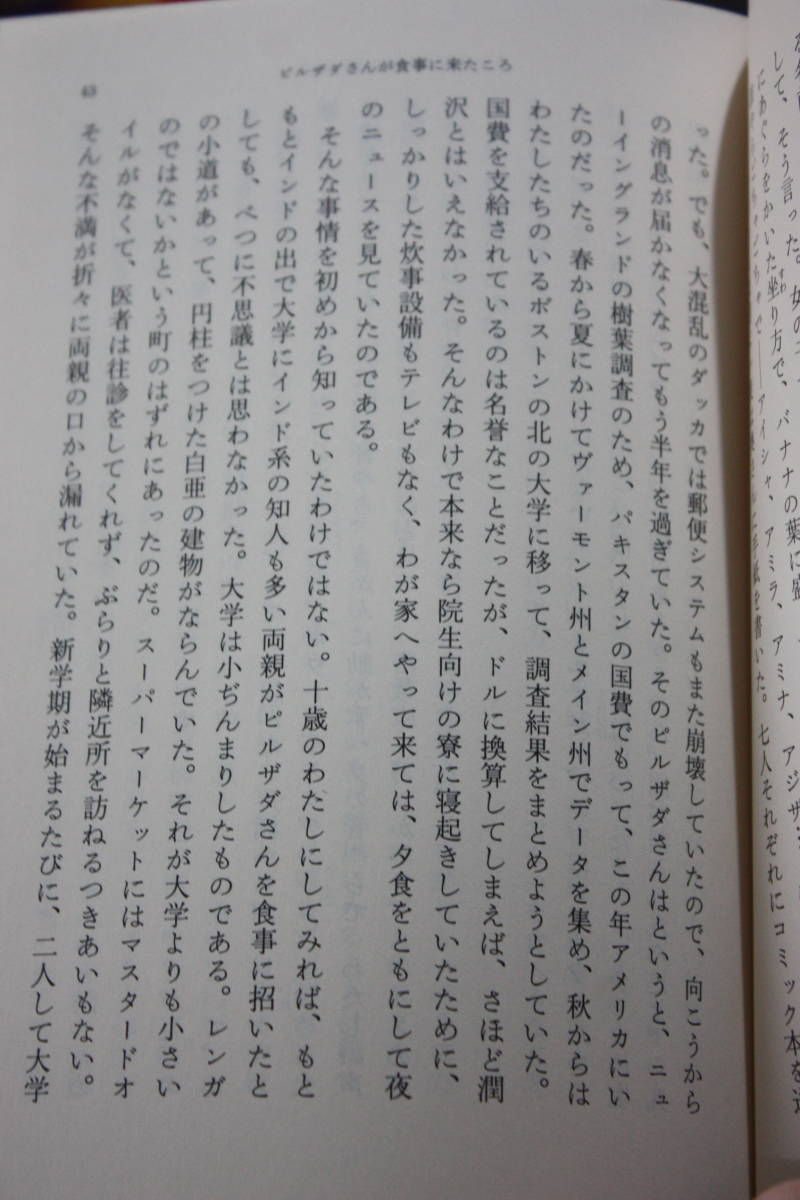 して、そう言った。
にあぐらをかいた坐り方で、バナナの葉に盛
アイシャ、アミラ、アミナ、アジザ
を書いた。七人それぞれにコミック本を送
ピルザダさんが食事に来たころ
63
った。でも、大混乱のダッカでは郵便システムもまた崩壊していたので、向こうから
の消息が届かなくなってもう半年を過ぎていた。そのピルザダさんはというと、ニュ
ーイングランドの樹葉調査のため、パキスタンの国費でもって、この年アメリカにい
たのだった。春から夏にかけてヴァーモント州とメイン州でデータを集め、秋からは
わたしたちのいるボストンの北の大学に移って、調査結果をまとめようとしていた。
国費を支給されているのは名誉なことだったが、ドルに換算してしまえば、さほど潤
沢とはいえなかった。そんなわけで本来なら院生向けの寮に寝起きしていたために、
しっかりした炊事設備もテレビもなく、わが家へやって来ては、夕食をともにして夜
のニュースを見ていたのである。
そんな事情を初めから知っていたわけではない。十歳のわたしにしてみれば、もと
もとインドの出で大学にインド系の知人も多い両親がピルザダさんを食事に招いたと
しても、べつに不思議とは思わなかった。大学は小ぢんまりしたものである。レンガ
の小道があって、円柱をつけた白亜の建物がならんでいた。それが大学よりも小さい
のではないかという町のはずれにあったのだ。スーパーマーケットにはマスタードオ
イルがなくて、医者は往診をしてくれず、ぶらりと隣近所を訪ねるつきあいもない。
そんな不満が折々に両親の口から漏れていた。新学期が始まるたびに、二人して大学